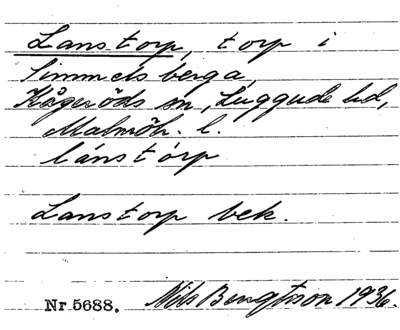 Lanstorp, torp i
Simmelsberga,
Kågeröds sn, Luggude hd,
Malmöh. l.
lánstòrp
Lanstorp bek.
Nr 5688. Nils Bengtsson 1936.